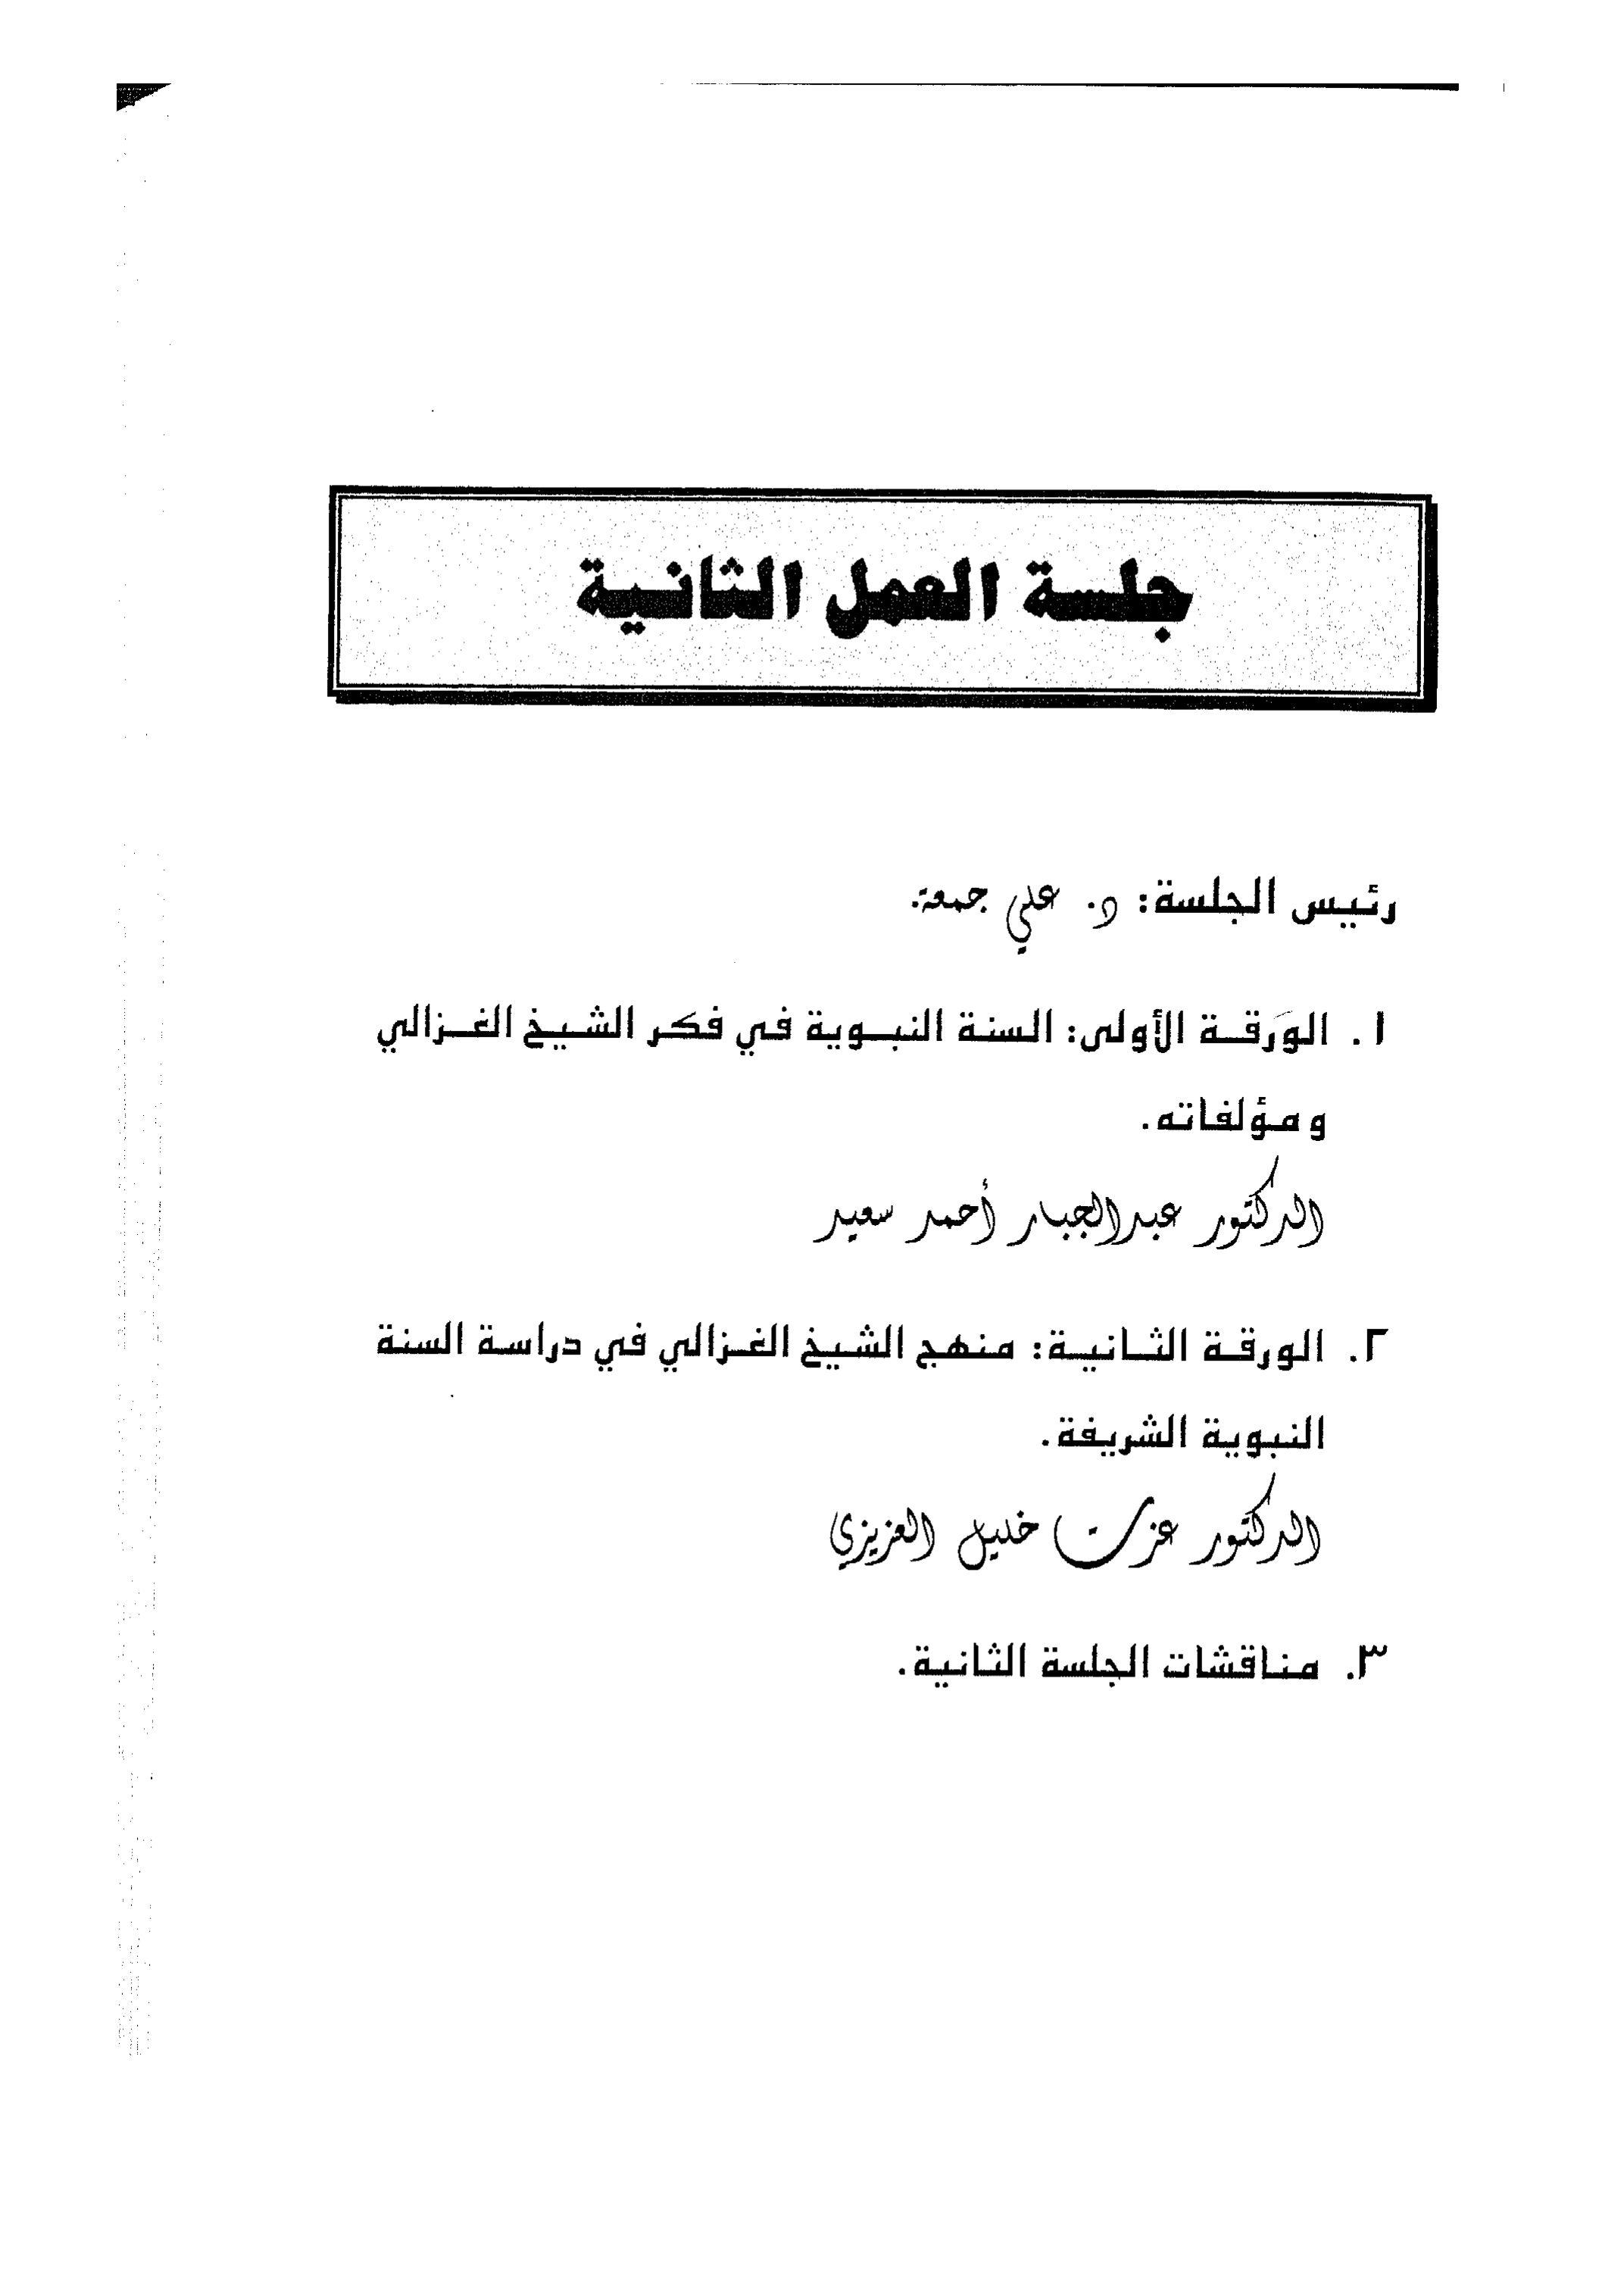 جلسة العمل الثانية
رئيس الجلسة: د. علي جمعة.
١. الورقة الأولى: السنة النبوية في فكر الشيخ الغزالي
ومؤلفاته.
الدكتور عبدالجبار أحمد سعيد
٢. الورقة الثانية: منهج الشيخ الغزالي في دراسة السنة
النبوية الشريفة.
الدكتور عزت خليل العزيزي
٣. مناقشات الجلسة الثانية.